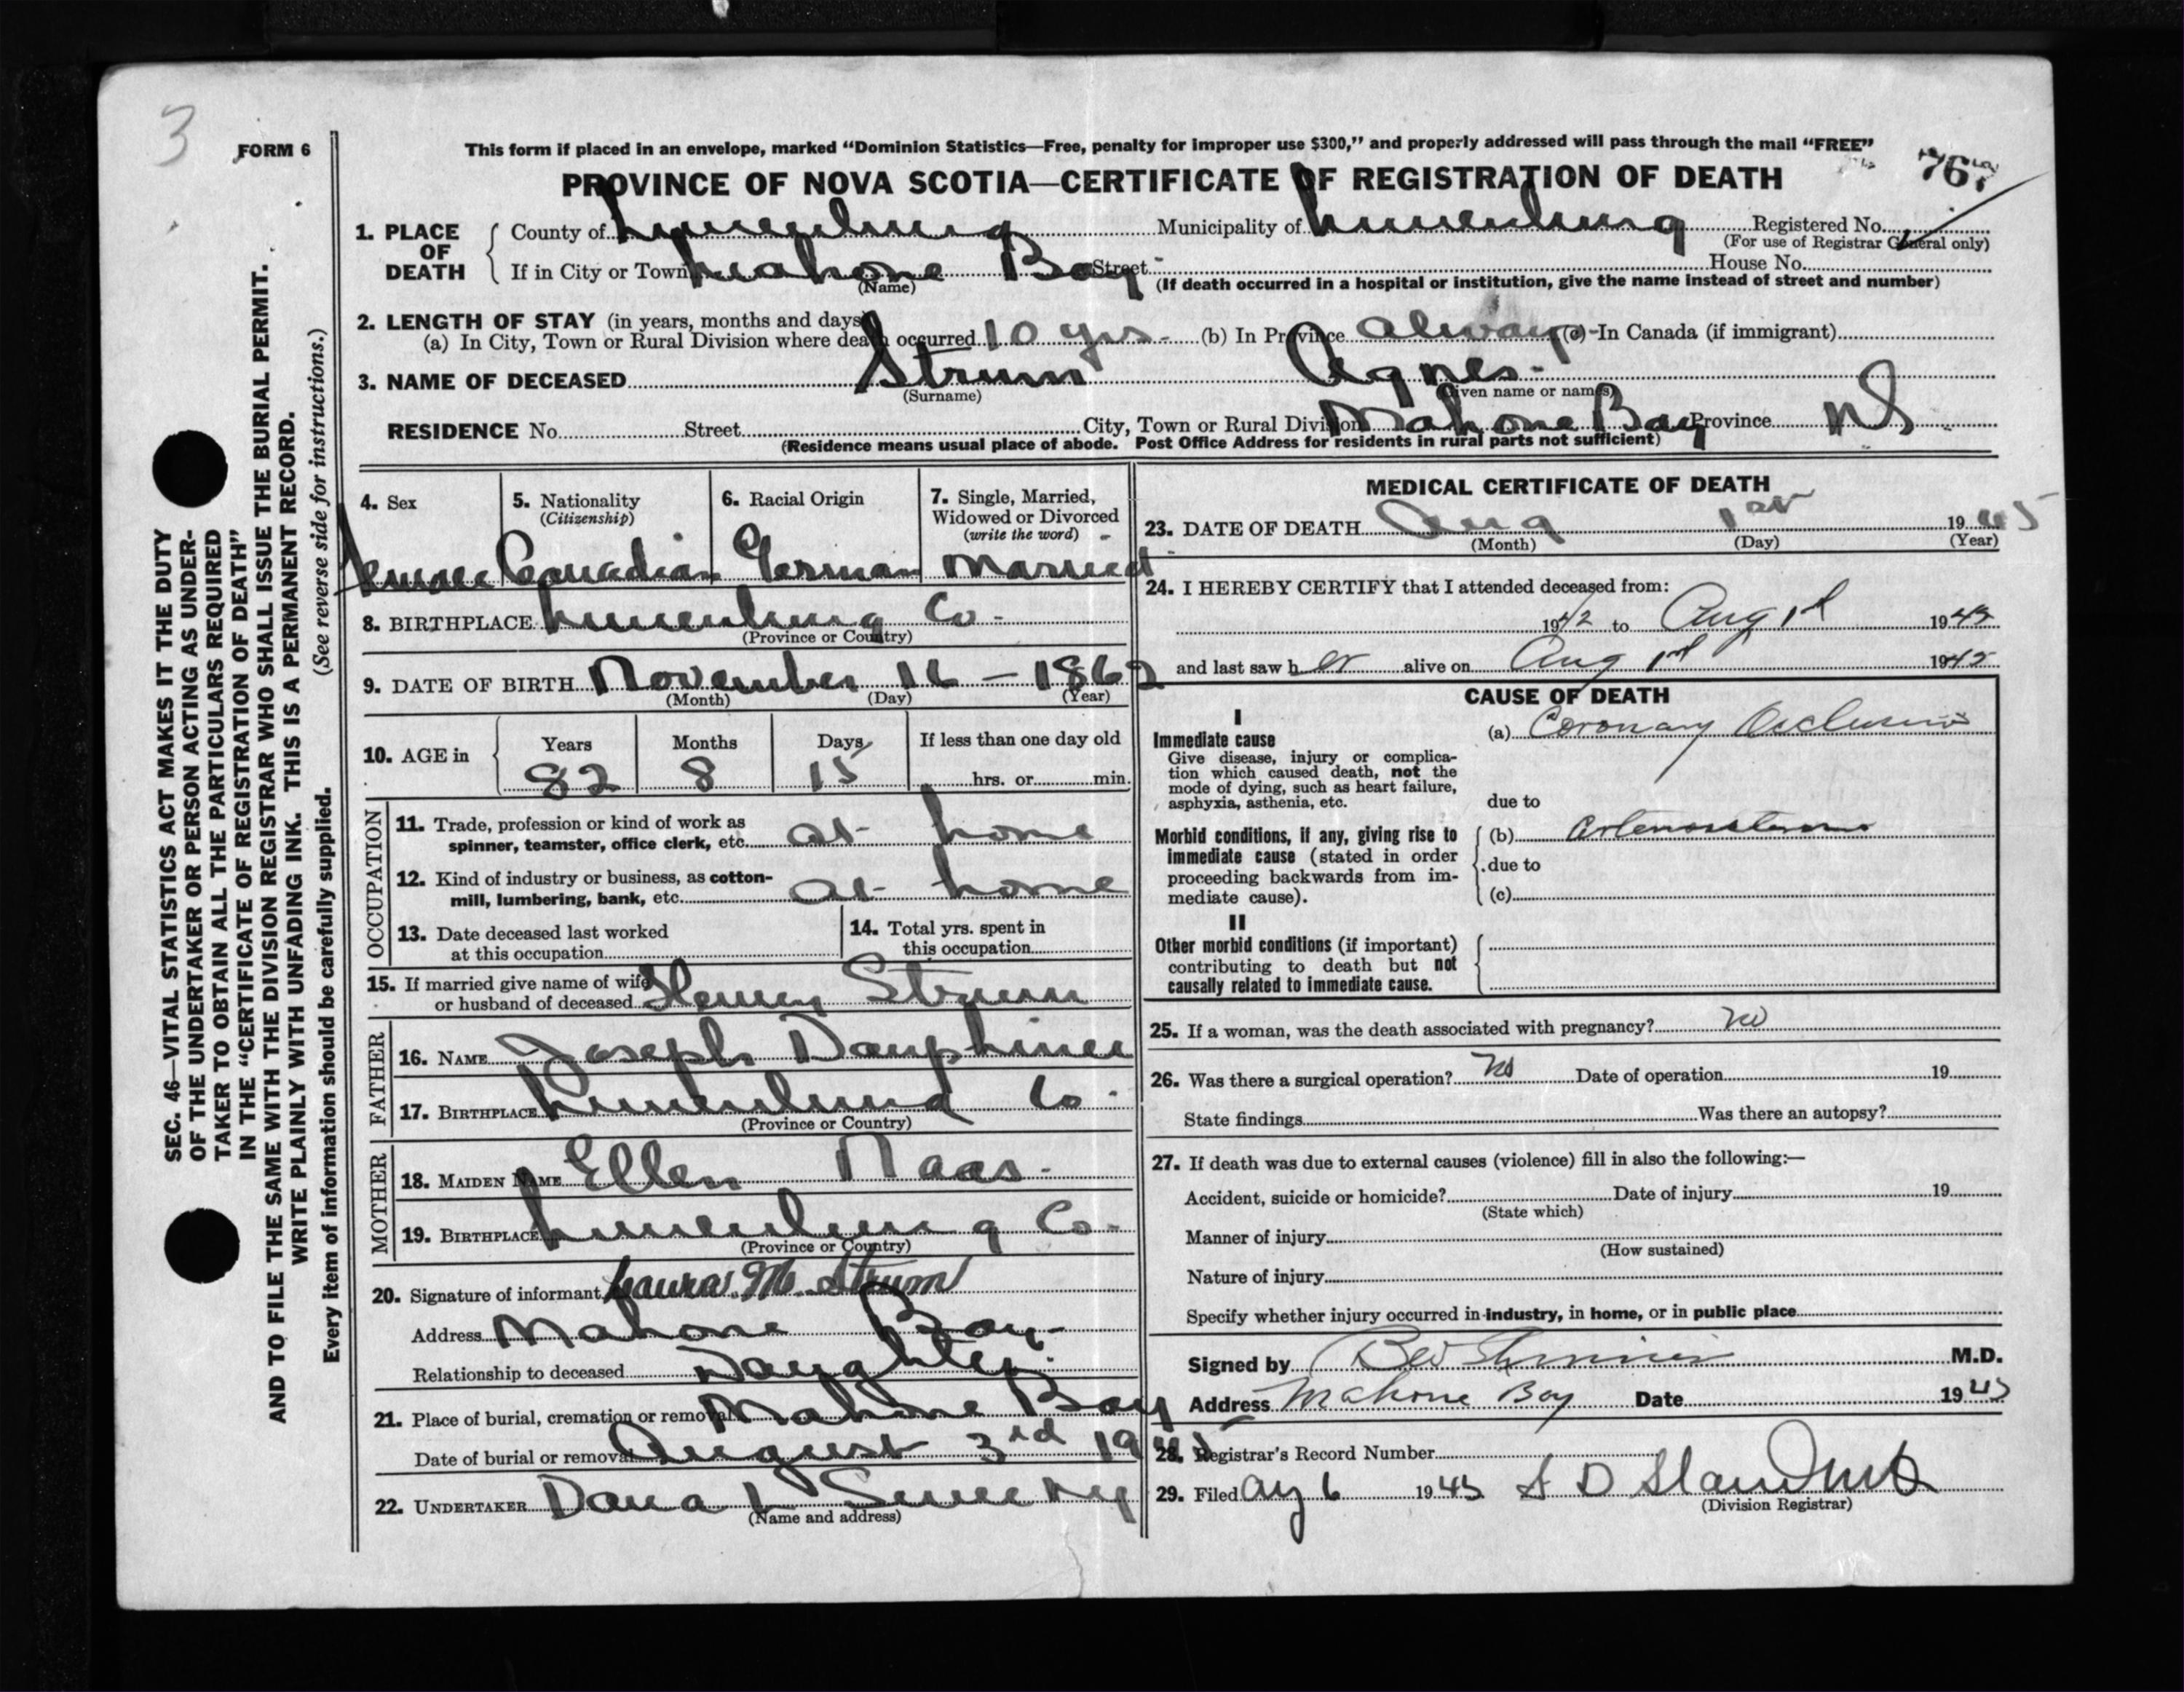 3
FORM 6
This form if placed in an envelope, marked “Dominion Statistics—Free, penalty for improper use $300,” and properly addressed will pass through the mail “FREE”
767
PROVINCE OF NOVA SCOTIA—CERTIFICATE OF REGISTRATION OF DEATH
1. PLACE OF DEATH
County of Lunenburg Municipality of Lunenburg Registered No.
(For use of Registrar General only)
If in City or Town Mahone Bay Street House No.
(Name) (If death occurred in a hospital or institution, give the name instead of street and number)
2. LENGTH OF STAY (in years, months and days)
(a) In City, Town or Rural Division where death occurred 10 yrs. (b) In Province always (c) In Canada (if immigrant)
3. NAME OF DECEASED Strum Agnes.
(Surname) (Given name or names)
RESIDENCE No. Street City, Town or Rural Division Mahone Bay Province NS
(Residence means usual place of abode. Post Office Address for residents in rural parts not sufficient)
4. Sex
5. Nationality
(Citizenship)
Canadian
6. Racial Origin
German
7. Single, Married,
Widowed or Divorced
(write the word)
Married
8. BIRTHPLACE Lunenburg Co.
(Province or Country)
9. DATE OF BIRTH November 16 – 1862
(Month) (Day) (Year)
10. AGE in
Years Months Days If less than one day old
82 8 15 hrs. or min.
OCCUPATION
11. Trade, profession or kind of work as
spinner, teamster, office clerk, etc. at home
12. Kind of industry or business, as cotton-
mill, lumbering, bank, etc. at home
13. Date deceased last worked
at this occupation
14. Total yrs. spent in
this occupation
15. If married give name of wife
or husband of deceased Henry Strum
FATHER
16. NAME Joseph Dauphinee
17. BIRTHPLACE Lunenburg Co.
(Province or Country)
MOTHER
18. MAIDEN NAME Ellen Naas.
19. BIRTHPLACE Lunenburg Co.
(Province or Country)
20. Signature of informant Laura M. Strum
Address Mahone Bay.
Relationship to deceased Daughter.
21. Place of burial, cremation or removal Mahone Bay
Date of burial or removal August 3rd 1945
22. UNDERTAKER Dana L Sweeney
(Name and address)
MEDICAL CERTIFICATE OF DEATH
23. DATE OF DEATH Aug 1st 1945
(Month) (Day) (Year)
24. I HEREBY CERTIFY that I attended deceased from:
1942 to Aug 1st 1945
and last saw her alive on Aug 1st 1945
CAUSE OF DEATH
I
Immediate cause
Give disease, injury or complica-
tion which caused death, not the
mode of dying, such as heart failure,
asphyxia, asthenia, etc.
(a) Coronary Occlusion
due to
Morbid conditions, if any, giving rise to
immediate cause (stated in order
proceeding backwards from im-
mediate cause).
(b) Arteriosclerosis
due to
(c)
II
Other morbid conditions (if important)
contributing to death but not
causally related to immediate cause.
25. If a woman, was the death associated with pregnancy? no
26. Was there a surgical operation? no Date of operation 19
State findings Was there an autopsy?
27. If death was due to external causes (violence) fill in also the following:—
Accident, suicide or homicide? Date of injury 19
(State which)
Manner of injury
(How sustained)
Nature of injury
Specify whether injury occurred in industry, in home, or in public place
Signed by M.D.
Address Mahone Bay Date 1945
28. Registrar's Record Number
29. Filed Aug 6 1945
(Division Registrar)
SEC. 46—VITAL STATISTICS ACT MAKES IT THE DUTY
OF THE UNDERTAKER OR PERSON ACTING AS UNDER-
TAKER TO OBTAIN ALL THE PARTICULARS REQUIRED
IN THE “CERTIFICATE OF REGISTRATION OF DEATH”
AND TO FILE THE SAME WITH THE DIVISION REGISTRAR WHO SHALL ISSUE THE BURIAL PERMIT.
WRITE PLAINLY WITH UNFADING INK. THIS IS A PERMANENT RECORD.
Every item of information should be carefully supplied. (See reverse side for instructions.)